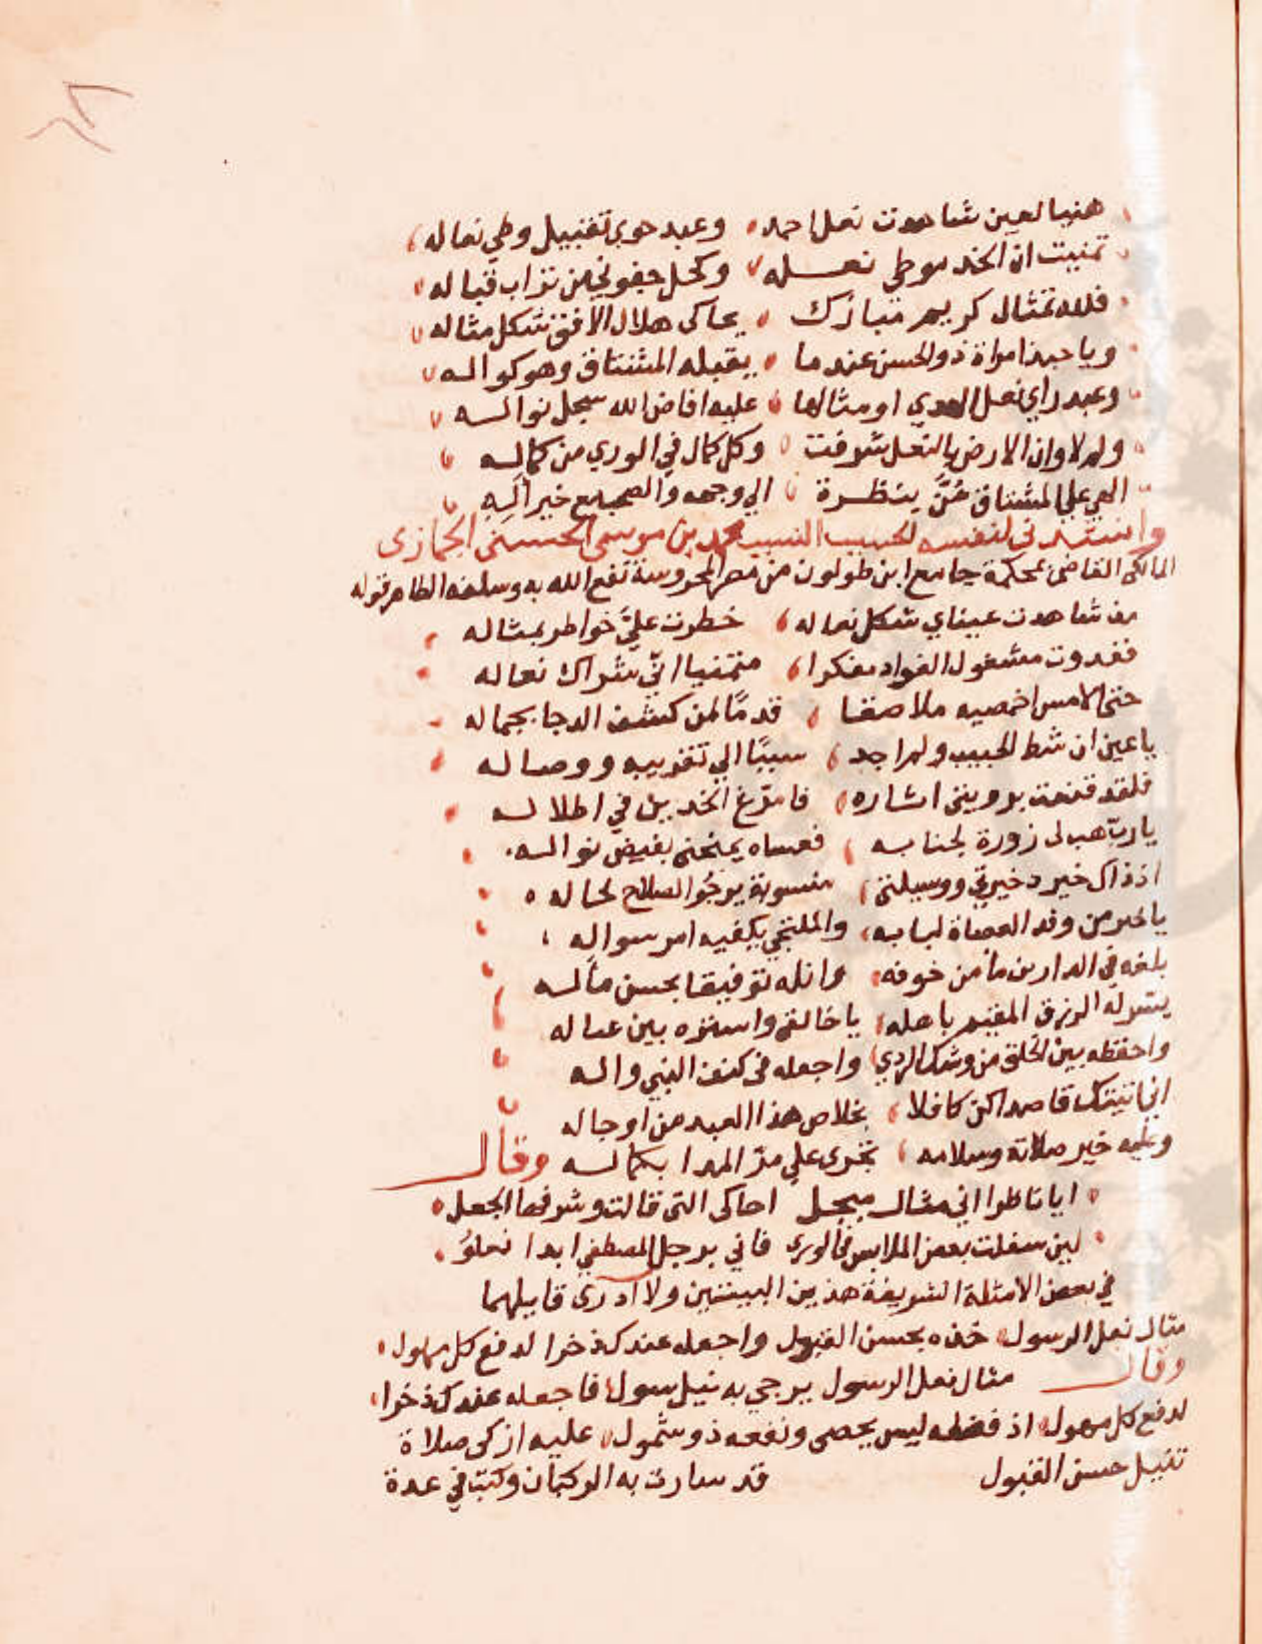 هنيا لعين شاهدت نعل احمد وعبد حوى تقبيل وطي نعاله
تمنيت ان الخد موطي نعله وكحل جفوني من تراب قباله
فلله تمثال كريم مبارك يحاكى هلال الافق شكل مثاله
ويا حبذا مراة ذو الحسن عندما يقبله المشتاق وهو كواله
وعبد راي نعل الهدي او مثالها عليه افاض الله سجل نواله
ولم لا وان الارض بالنعل شرفت وكل كمال في الوري من كماله
الهي علي المشتاق مُنَّ بنظرة الي وجهه والصحب مع خير آلِهِ
وانشدني لنفسه الحسيب النسيب محمد بن موسى الحسنى الجمازى
المالكى القاضى بمحكمة جامع ابن طولون من مصر المحروسة نفع الله به وسلفه الطاهر قوله
مذ شاهدت عيناي شكل نعاله خطرت عليَّ خواطر بمثاله
فغدوت مشغول الفواد مفكرا متمنيا اني شراك نعاله
حتى الامس اخمصيه ملاصقا قدمًا لمن كشف الدجا بجماله
يا عين ان شط الحبيب ولم اجد سببًا الي تقريبه ووصاله
فلقد قنعت برويتى اشاره فامرّغ الخدين في اطلاله
يا ربّ هب لى زورة لجنابه فعساه يمنحنى بفيض نواله
اذ ذاك خير ذخيرتي ووسيلتى يرجُو الصلاح لحاله
يا خير من وفد العصاة لبابه والملتجي يكفيه امر سواله
بلغه في الدارين مأمن خوفه وانله توفيقا بحسن مآله
يسر له الرزق المقيم باهله يا خالقى واستره بين عياله
واحفظه بين الخلق من وشك الردي واجعله فى كنف النبي واله
اني اتيتك قاصدا كن كافلا بخلاص هذا العبد من اوجاله
وعليه خير صلاته وسلامه تجرى علي مرّ المدا بكماله وقال
ايا ناظرا اني مثال مبجل احاكى التى قالت وشرفها الجعل
لين سفلت بعض الملابس في الورى فاني برجل المصطفي ابدا نعلوُ
في بعض الامثلة الشريفة هذين البيتين ولا ادرى قايلهما
مثال نعل الرسول خذه بحسن القبول واجعله عندك ذخرا لدفع كل مهول
وقال مثال نعل الرسول يرجي به نيل سول فاجعله عندك ذخرا
لدفع كل مهول اذ فضله ليس يحصى ونفعه ذو شمول عليه ازكى صلاة
تنيل حسن القبول قد سارت به الركبان وكتب في عدة